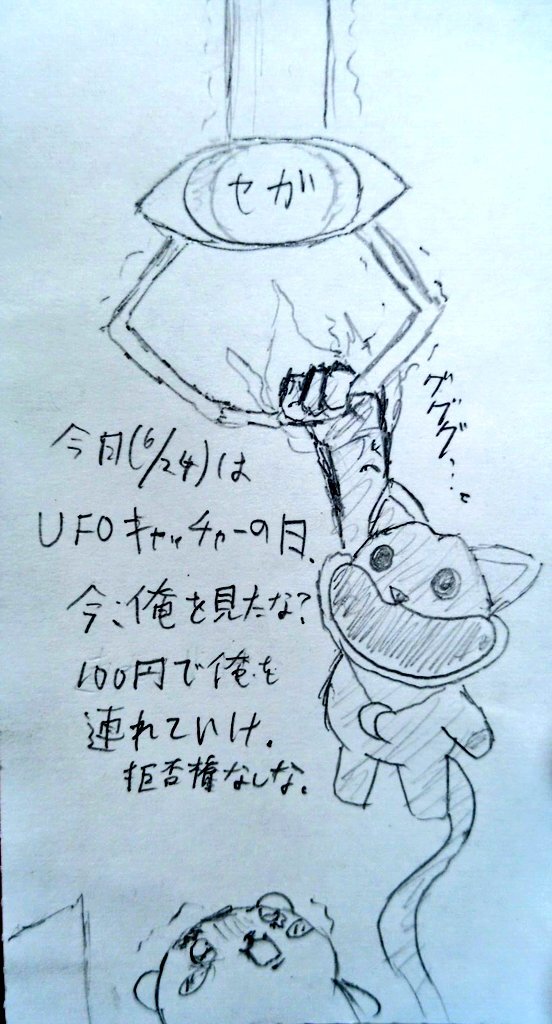 セガ
グググ…
今日(6/24)は
UFOキャッチャーの日、
今、俺を見たな?
100円で俺を
連れていけ。
拒否権なしな。